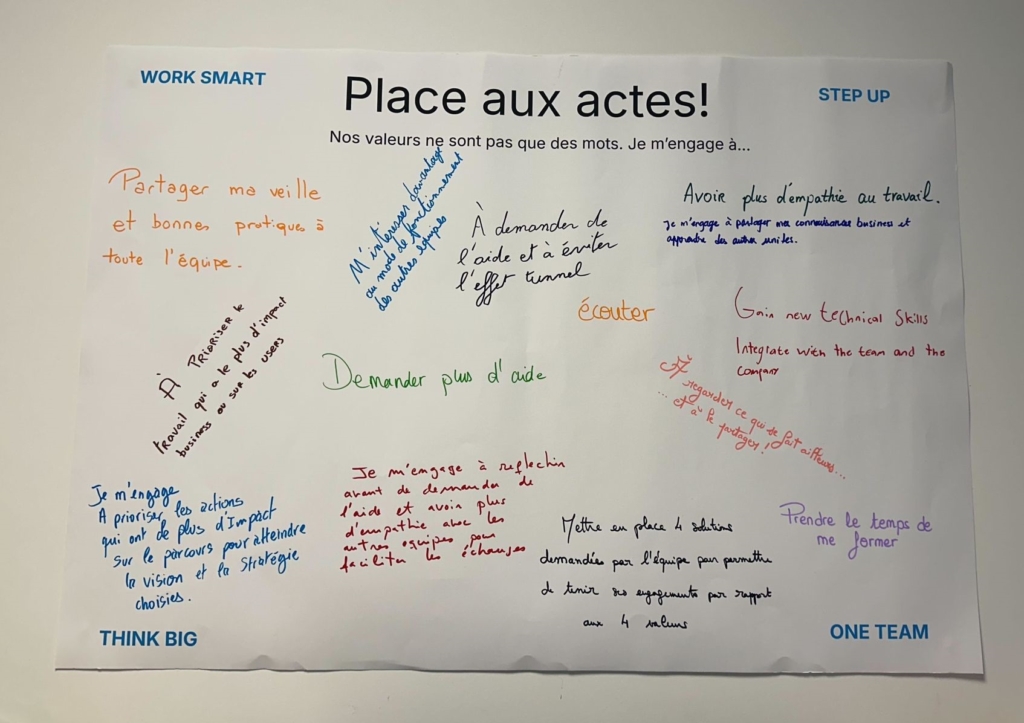 WORK SMART
Place aux actes!
STEP UP
Nos valeurs ne sont pas que des mots. Je m'engage à...
Partager ma veille
et bonnes pratiques à
toute l'équipe.
M'intéresser davantage
au mode de fonctionnement
des autres équipes
À demander de
l'aide et à éviter
l'effet tunnel
Avoir plus d'empathie au travail.
Je m'engage à partager mes connaissances business et
apprendre des autres unités.
écouter
Gain new technical skills
Integrate with the team and the
company
À PRIORISER le
travail qui a le plus d'impact
business ou sur les users
Demander plus d'aide
À regarder ce qui se fait ailleurs...
... et à le partager!
Je m'engage
A prioriser les actions
qui ont de plus d'Impact
sur le parcours pour atteindre
la vision et la Stratégie
choisies.
Je m'engage à reflechir
avant de demander de
l'aide et avoir plus
d'empathie avec les
autres equipes pour
faciliter les échanges
Mettre en place 4 solutions
demandées par l'équipe pour permettre
de tenir ses engagements par rapport
aux 4 valeurs
Prendre le temps de
me former
THINK BIG
ONE TEAM